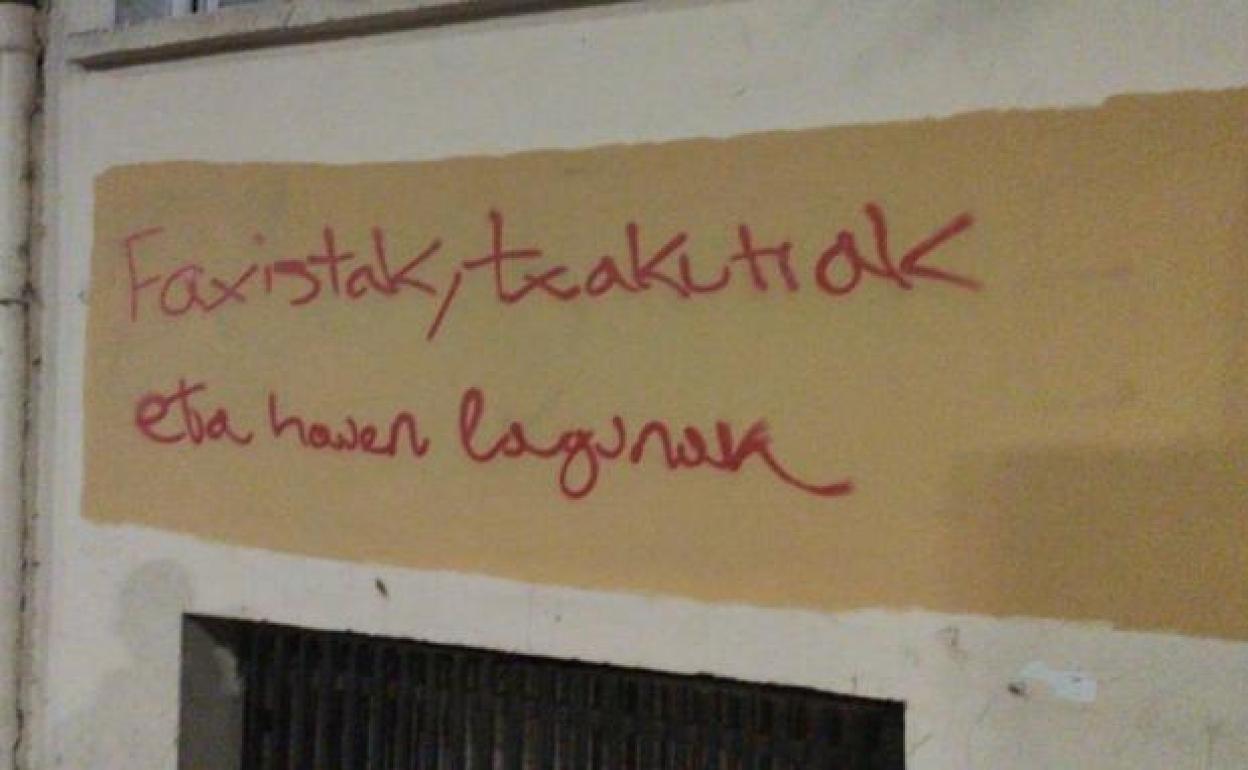 Faxistak, txakurrak
eta hauen lagunak